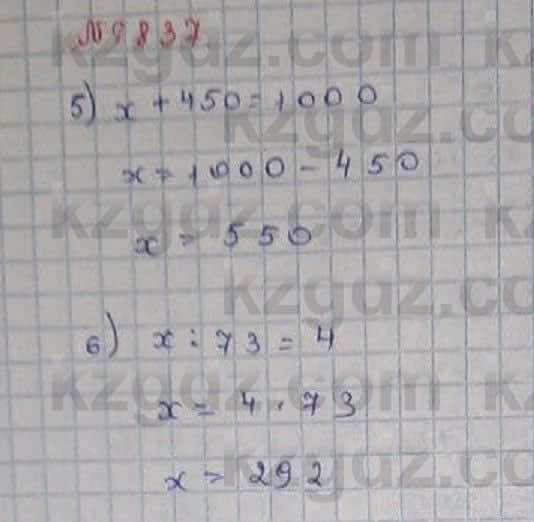 № 837.
5) x + 450 = 1000
x = 1000 - 450
x = 550
6) x : 73 = 4
x = 4 · 73
x = 292
kzgdz.com
kzgdz.co
kzgdz.com
kzgdz.co
kzgdz.com
kzgdz.co